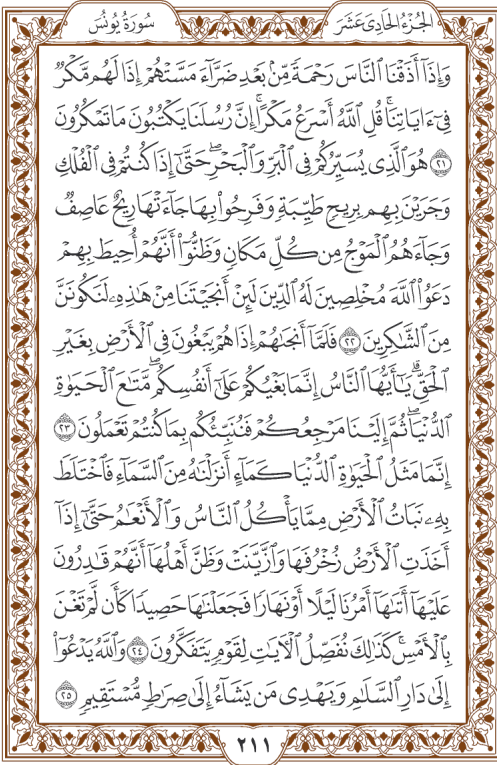 الجُزْءُ الحَادِيَ عَشَرَ
سُورَةُ يُونُسَ
وَإِذَآ أَذَقْنَا ٱلنَّاسَ رَحْمَةً مِّنۢ بَعْدِ ضَرَّآءَ مَسَّتْهُمْ إِذَا لَهُم مَّكْرٌ
فِىٓ ءَايَاتِنَاۚ قُلِ ٱللَّهُ أَسْرَعُ مَكْرًاۚ إِنَّ رُسُلَنَا يَكْتُبُونَ مَا تَمْكُرُونَ
٢١ هُوَ ٱلَّذِى يُسَيِّرُكُمْ فِى ٱلْبَرِّ وَٱلْبَحْرِۖ حَتَّىٰٓ إِذَا كُنتُمْ فِى ٱلْفُلْكِ
وَجَرَيْنَ بِهِم بِرِيحٍ طَيِّبَةٍ وَفَرِحُوا۟ بِهَا جَآءَتْهَا رِيحٌ عَاصِفٌ
وَجَآءَهُمُ ٱلْمَوْجُ مِن كُلِّ مَكَانٍ وَظَنُّوٓا۟ أَنَّهُمْ أُحِيطَ بِهِمْ
دَعَوُا۟ ٱللَّهَ مُخْلِصِينَ لَهُ ٱلدِّينَ لَئِنْ أَنجَيْتَنَا مِنْ هَٰذِهِۦ لَنَكُونَنَّ
مِنَ ٱلشَّٰكِرِينَ ٢٢ فَلَمَّآ أَنجَىٰهُمْ إِذَا هُمْ يَبْغُونَ فِى ٱلْأَرْضِ بِغَيْرِ
ٱلْحَقِّۗ يَٰٓأَيُّهَا ٱلنَّاسُ إِنَّمَا بَغْيُكُمْ عَلَىٰٓ أَنفُسِكُمۖ مَّتَٰعَ ٱلْحَيَوٰةِ
ٱلدُّنْيَاۖ ثُمَّ إِلَيْنَا مَرْجِعُكُمْ فَنُنَبِّئُكُم بِمَا كُنتُمْ تَعْمَلُونَ ٢٣
إِنَّمَا مَثَلُ ٱلْحَيَوٰةِ ٱلدُّنْيَا كَمَآءٍ أَنزَلْنَٰهُ مِنَ ٱلسَّمَآءِ فَٱخْتَلَطَ
بِهِۦ نَبَاتُ ٱلْأَرْضِ مِمَّا يَأْكُلُ ٱلنَّاسُ وَٱلْأَنْعَٰمُ حَتَّىٰٓ إِذَآ
أَخَذَتِ ٱلْأَرْضُ زُخْرُفَهَا وَٱزَّيَّنَتْ وَظَنَّ أَهْلُهَآ أَنَّهُمْ قَٰدِرُونَ
عَلَيْهَآ أَتَىٰهَآ أَمْرُنَا لَيْلًا أَوْ نَهَارًا فَجَعَلْنَٰهَا حَصِيدًا كَأَن لَّمْ تَغْنَ
بِٱلْأَمْسِۚ كَذَٰلِكَ نُفَصِّلُ ٱلْءَايَٰتِ لِقَوْمٍ يَتَفَكَّرُونَ ٢٤ وَٱللَّهُ يَدْعُوٓا۟
إِلَىٰ دَارِ ٱلسَّلَٰمِ وَيَهْدِى مَن يَشَآءُ إِلَىٰ صِرَٰطٍ مُّسْتَقِيمٍ ٢٥
٢١١